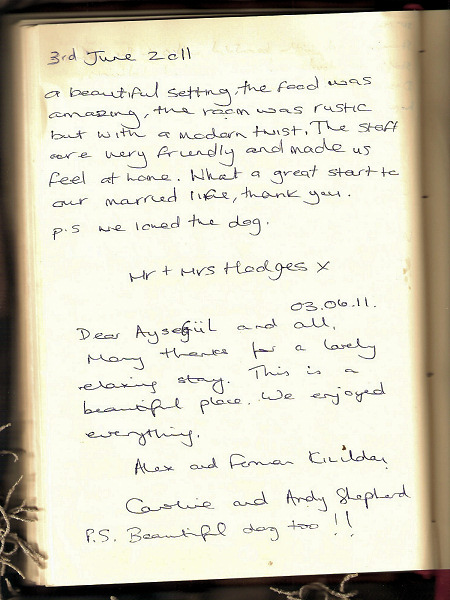 3rd June 2011
a beautiful setting, the food was
amazing, the room was rustic
but with a modern twist. The staff
are very friendly and made us
feel at home. What a great start to
our married life, thank you.
p.s we loved the dog.
Mr + Mrs Hodges x
03.06.11.
Dear Ayşegül and all,
Many thanks for a lovely
relaxing stay. This is a
beautiful place. We enjoyed
everything.
Alex and
Caroline and Andy Shepherd
P.S. Beautiful dog too !!